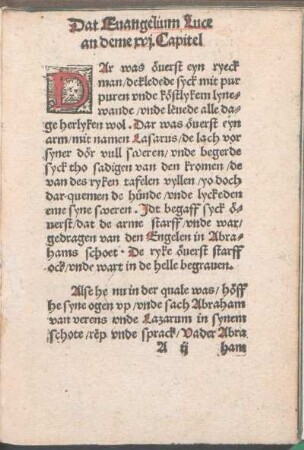 Dat Euangelium Luce
an deme xvj. Capitel
DAr was öuerst eyn ryeck
man / de kledede syck mit pur
puren vnde köstlykem lyne-
wande / vnde leuede alle da-
ge herlyken wol. Dar was öuerst eyn
arm / mit namen Lasarus / de lach vor
syner dör vull sweren / vnde begerde
syck tho sadigen van den kromen / de
van des ryken tafelen vyllen / yo doch
dar quemen de hünde / vnde lyckeden
eme syne sweren. Jdt begaff syck ö-
uerst / dat de arme starff / vnde war /
gedragen van den Engelen in Abra-
hams schoet. De ryke öuerst starff
ock / vnde wart in de helle begrauen.
Alse he nu in der quale was / höff
he syne ogen vp / vnde sach Abraham
van verens vnde Lazarum in synem
schote / rep vnde sprack / Vader Abra
A ij ham